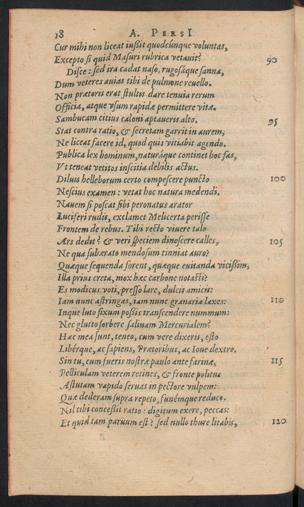 18 A. PERSI
Cur mihi non liceat iussit quodcunque voluntas,
Excepto si quid Masuri rubrica vetauit? 90
Disce: sed ira cadat naso, rugosáque sanna,
Dum veteres auias tibi de pulmone reuello.
Non prætoris erat stultis dare tenuia rerum
Officia, atque vsum rapidæ permittere vitæ.
Sambucam citius caloni aptaueris alto. 95
Stat contra ratio, & secretam garrit in aurem,
Ne liceat facere id, quod quis vitiabit agendo.
Publica lex hominum, naturáque continet hoc fas,
Vt teneat vetitos inscitia debilis actus.
Diluis helleborum certo compescere puncto 100
Nescius examen: vetat hoc natura medendi.
Nauem si poscat sibi peronatus arator
Luciferi rudis, exclamet Melicerta perisse
Frontem de rebus. Tibi recto viuere talo
Ars dedit? & veri speciem dinoscere calles, 105
Ne qua subærato mendosum tinniat auro?
Quæque sequenda forent, quæque euitanda vicissim,
Illa prius creta, mox hæc carbone notasti?
Es modicus voti, presso lare, dulcis amicis:
Iam nunc astringas, iam nunc granaria laxes: 110
Inque luto fixum possis transcendere nummum:
Nec glutto sorbere saliuam Mercurialem?
Hæc mea sunt, teneo, cum vere dixeris, esto
Libérque, ac sapiens, Prætoribus, ac Ioue dextro.
Sin tu, cum fueris nostræ paulo ante farinæ, 115
Pelliculam veterem retines, & fronte politus
Astutam vapido seruas in pectore vulpem:
Quæ dederam supra repeto, funémque reduco.
Nil tibi concessit ratio: digitum exere, peccas:
Et quid tam paruum est? sed nullo thure litabis, 120